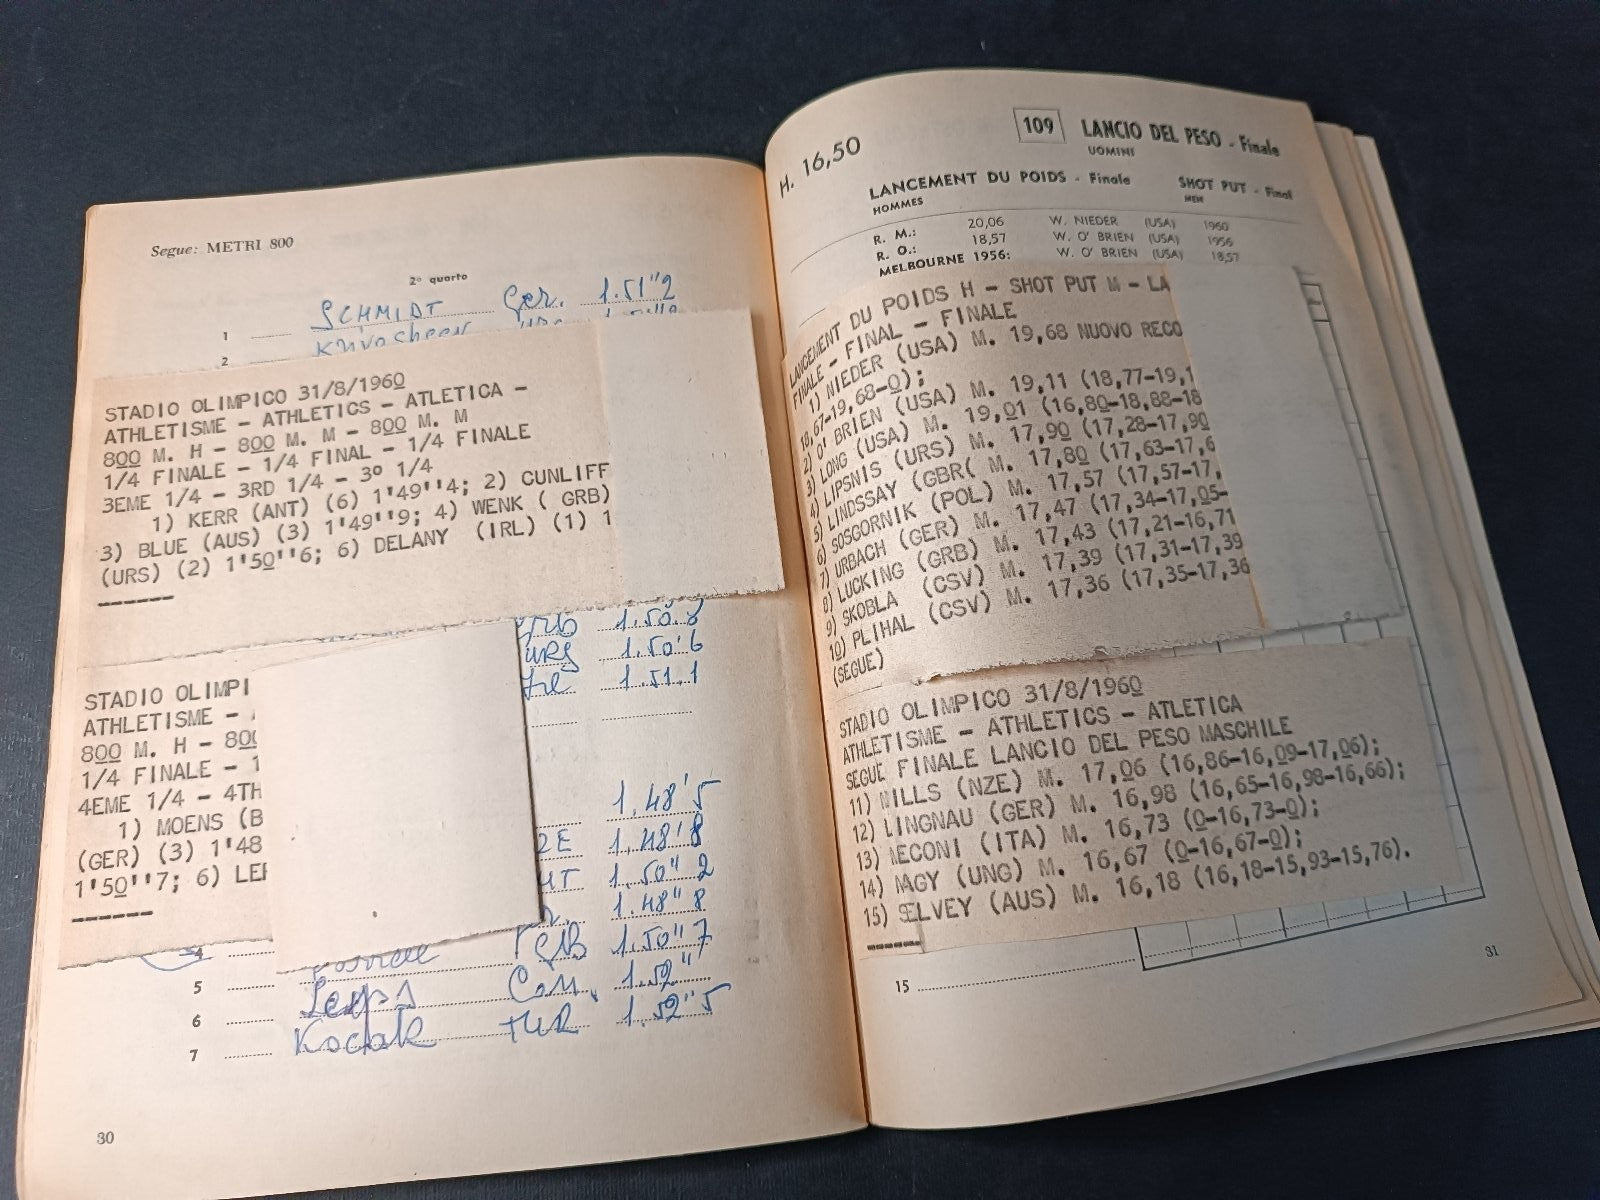 Segue: METRI 800
2° quarto
1 SCHMIDT Ger. 1.51"2
2
STADIO OLIMPICO 31/8/1960
ATHLETISME - ATHLETICS - ATLETICA -
800 M. H - 800 M. M - 800 M. M
1/4 FINALE - 1/4 FINAL - 1/4 FINALE
3EME 1/4 - 3RD 1/4 - 3º 1/4
1) KERR (ANT) (6) 1'49''4; 2) CUNLIFF
3) BLUE (AUS) (3) 1'49''9; 4) WENK ( GRB)
(URS) (2) 1'50''6; 6) DELANY (IRL) (1) 1
------
URS 1.50'6
1.51.1
STADIO OLIMPI
ATHLETISME -
800 M. H - 800
1/4 FINALE - 1
4EME 1/4 - 4TH
1) MOENS (B
(GER) (3) 1'48
1'50''7; 6) LE
------
1.48'5
1.48'8
1.50"2
1.48"8
4 1.50"7
5 Leeps Can. 1.52"
6 Kocak TUR 1.52"5
7
30
H. 16,50
109 LANCIO DEL PESO - Finale
UOMINI
LANCEMENT DU POIDS - Finale SHOT PUT - Final
HOMMES MEN
R. M.: 20,06 W. NIEDER (USA) 1960
R. O.: 18,57 W. O' BRIEN (USA) 1956
MELBOURNE 1956: W. O' BRIEN (USA) 18,57
LANCEMENT DU POIDS H - SHOT PUT M - LA
FINALE - FINAL - FINALE
1) NIEDER (USA) M. 19,68 NUOVO RECO
18,67-19,68-0);
2) O' BRIEN (USA) M. 19,11 (18,77-19,1
3) LONG (USA) M. 19,01 (16,80-18,88-18
4) LIPSNIS (URS) M. 17,90 (17,28-17,90
5) LINDSSAY (GBR( M. 17,80 (17,63-17,6
6) SOSGORNIK (POL) M. 17,57 (17,57-17,
7) URBACH (GER) M. 17,47 (17,34-17,05-
8) LUCKING (GRB) M. 17,43 (17,21-16,71
9) SKOBLA (CSV) M. 17,39 (17,31-17,39
10) PLIHAL (CSV) M. 17,36 (17,35-17,36
(SEGUE)
STADIO OLIMPICO 31/8/1960
ATHLETISME - ATHLETICS - ATLETICA
SEGUE FINALE LANCIO DEL PESO MASCHILE
11) MILLS (NZE) M. 17,06 (16,86-16,09-17,06);
12) LINGNAU (GER) M. 16,98 (16,65-16,98-16,66);
13) MECONI (ITA) M. 16,73 (0-16,73-0);
14) NAGY (UNG) M. 16,67 (0-16,67-0);
15) SELVEY (AUS) M. 16,18 (16,18-15,93-15,76).
----
15
31